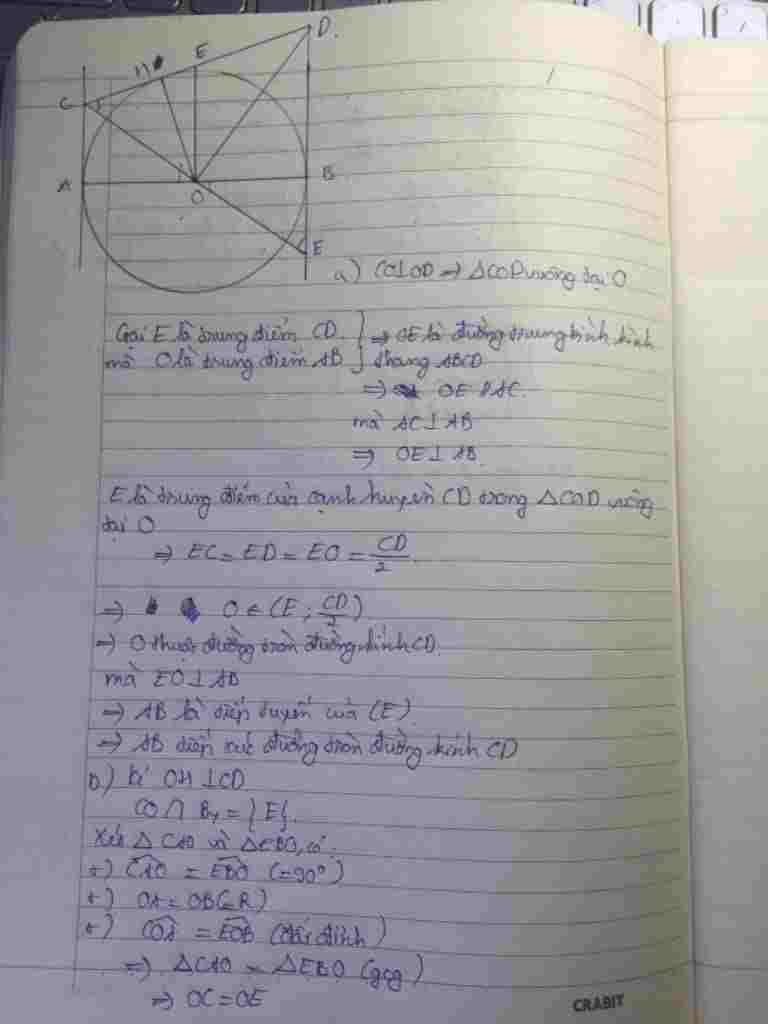 D.
E
H
C
A
B
O
E
a) CO⊥OD ⇒ ΔCOD vuông tại O
Gọi E là trung điểm CD. } ⇒ OE là đường trung bình hình
mà O là trung điểm AB } thang ABCD
⇒ OE // AC.
mà AC ⊥ AB
⇒ OE ⊥ AB.
E là trung điểm của cạnh huyền CD trong ΔCOD vuông
tại O
⇒ EC = ED = EO = CD/2.
⇒ O ∈ (E; CD/2)
⇒ O thuộc đường tròn đường kính CD
mà EO ⊥ AB
⇒ AB là tiếp tuyến của (E)
⇒ AB tiếp xúc đường tròn đường kính CD
b) kẻ OH ⊥ CD
CO ∩ By = {E}.
Xét Δ CAO và ΔEBO, có
+) CAO = EBO (=90°)
+) OA = OB (=R)
+) COA = EOB (đối đỉnh)
⇒ ΔCAO = ΔEBO (gcg)
⇒ OC = OE
CRABIT